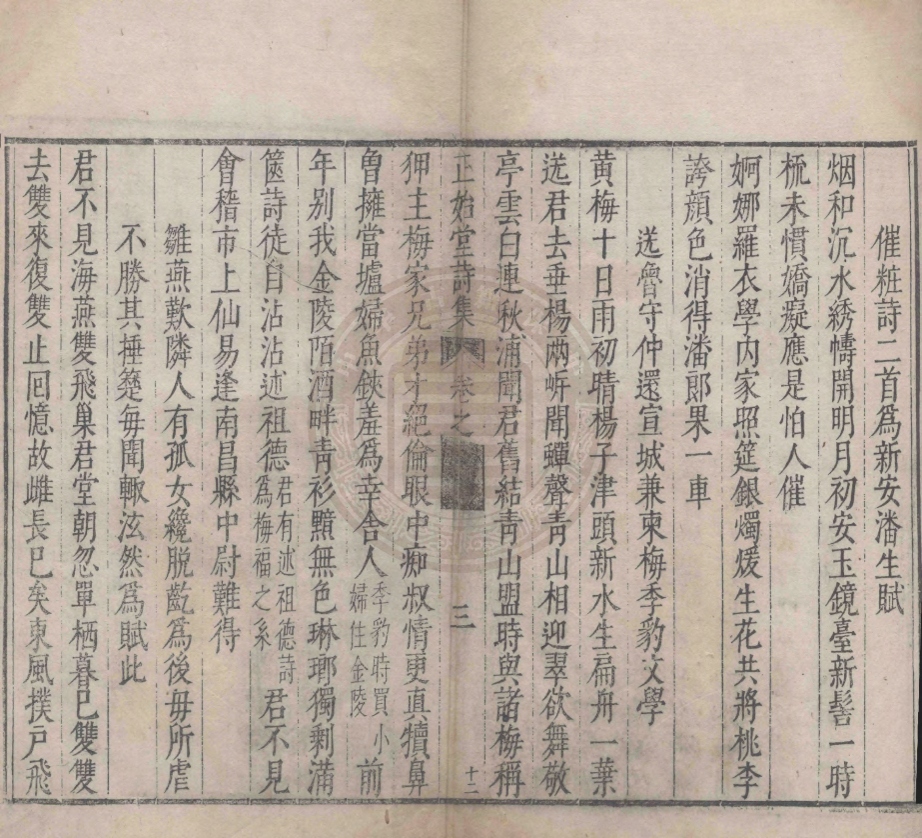 催粧詩二首爲新安潘生賦
烟和沉水綉幬開明月初安玉鏡臺新髻一時
梳未慣嬌癡應是怕人催
婀娜羅衣學內家照筵銀燭煖生花共將桃李
誇顔色消得潘郎果一車
送詹守仲還宣城兼柬梅季豹文學
黄梅十日雨初晴楊子津頭新水生扁舟一葉
送君去垂楊兩岍聞蟬聲青山相迎翠欲舞敬
亭雲白連秋浦聞君舊結青山盟時與諸梅稱
正始堂詩集 卷之 三 十二
狎主梅家兄弟才絕倫眼中痴叔情更真犢鼻
曾擁當壚婦魚鋏羞爲幸舍人季豹時買小婦住金陵前
年别我金陵陌酒畔青衫黯無色琳瑯獨剩滿
篋詩徒自沾沾述祖德君有述祖德詩爲梅福之系君不見
會稽市上仙易逢南昌縣中尉難得
雛燕歎隣人有孤女纔脫齔爲後毋所虐
不勝其捶箠每聞輙泫然爲賦此
君不見海燕雙飛巢君堂朝忽單栖暮巳雙雙
去雙來復雙止回憶故雌長巳矣東風撲戸飛